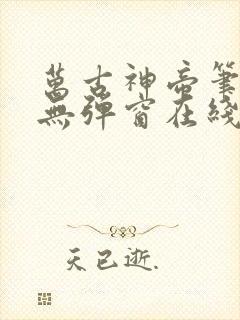 萬古神帝筆
無彈窗在綫
天已逝.